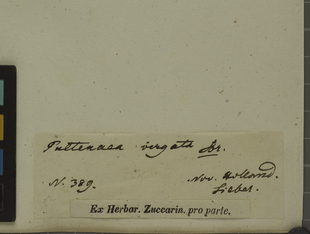 Pultenaea virgata Sr.
N. 389.
Nov. Holland.
Sieber.
Ex Herbar. Zuccarin. pro parte.